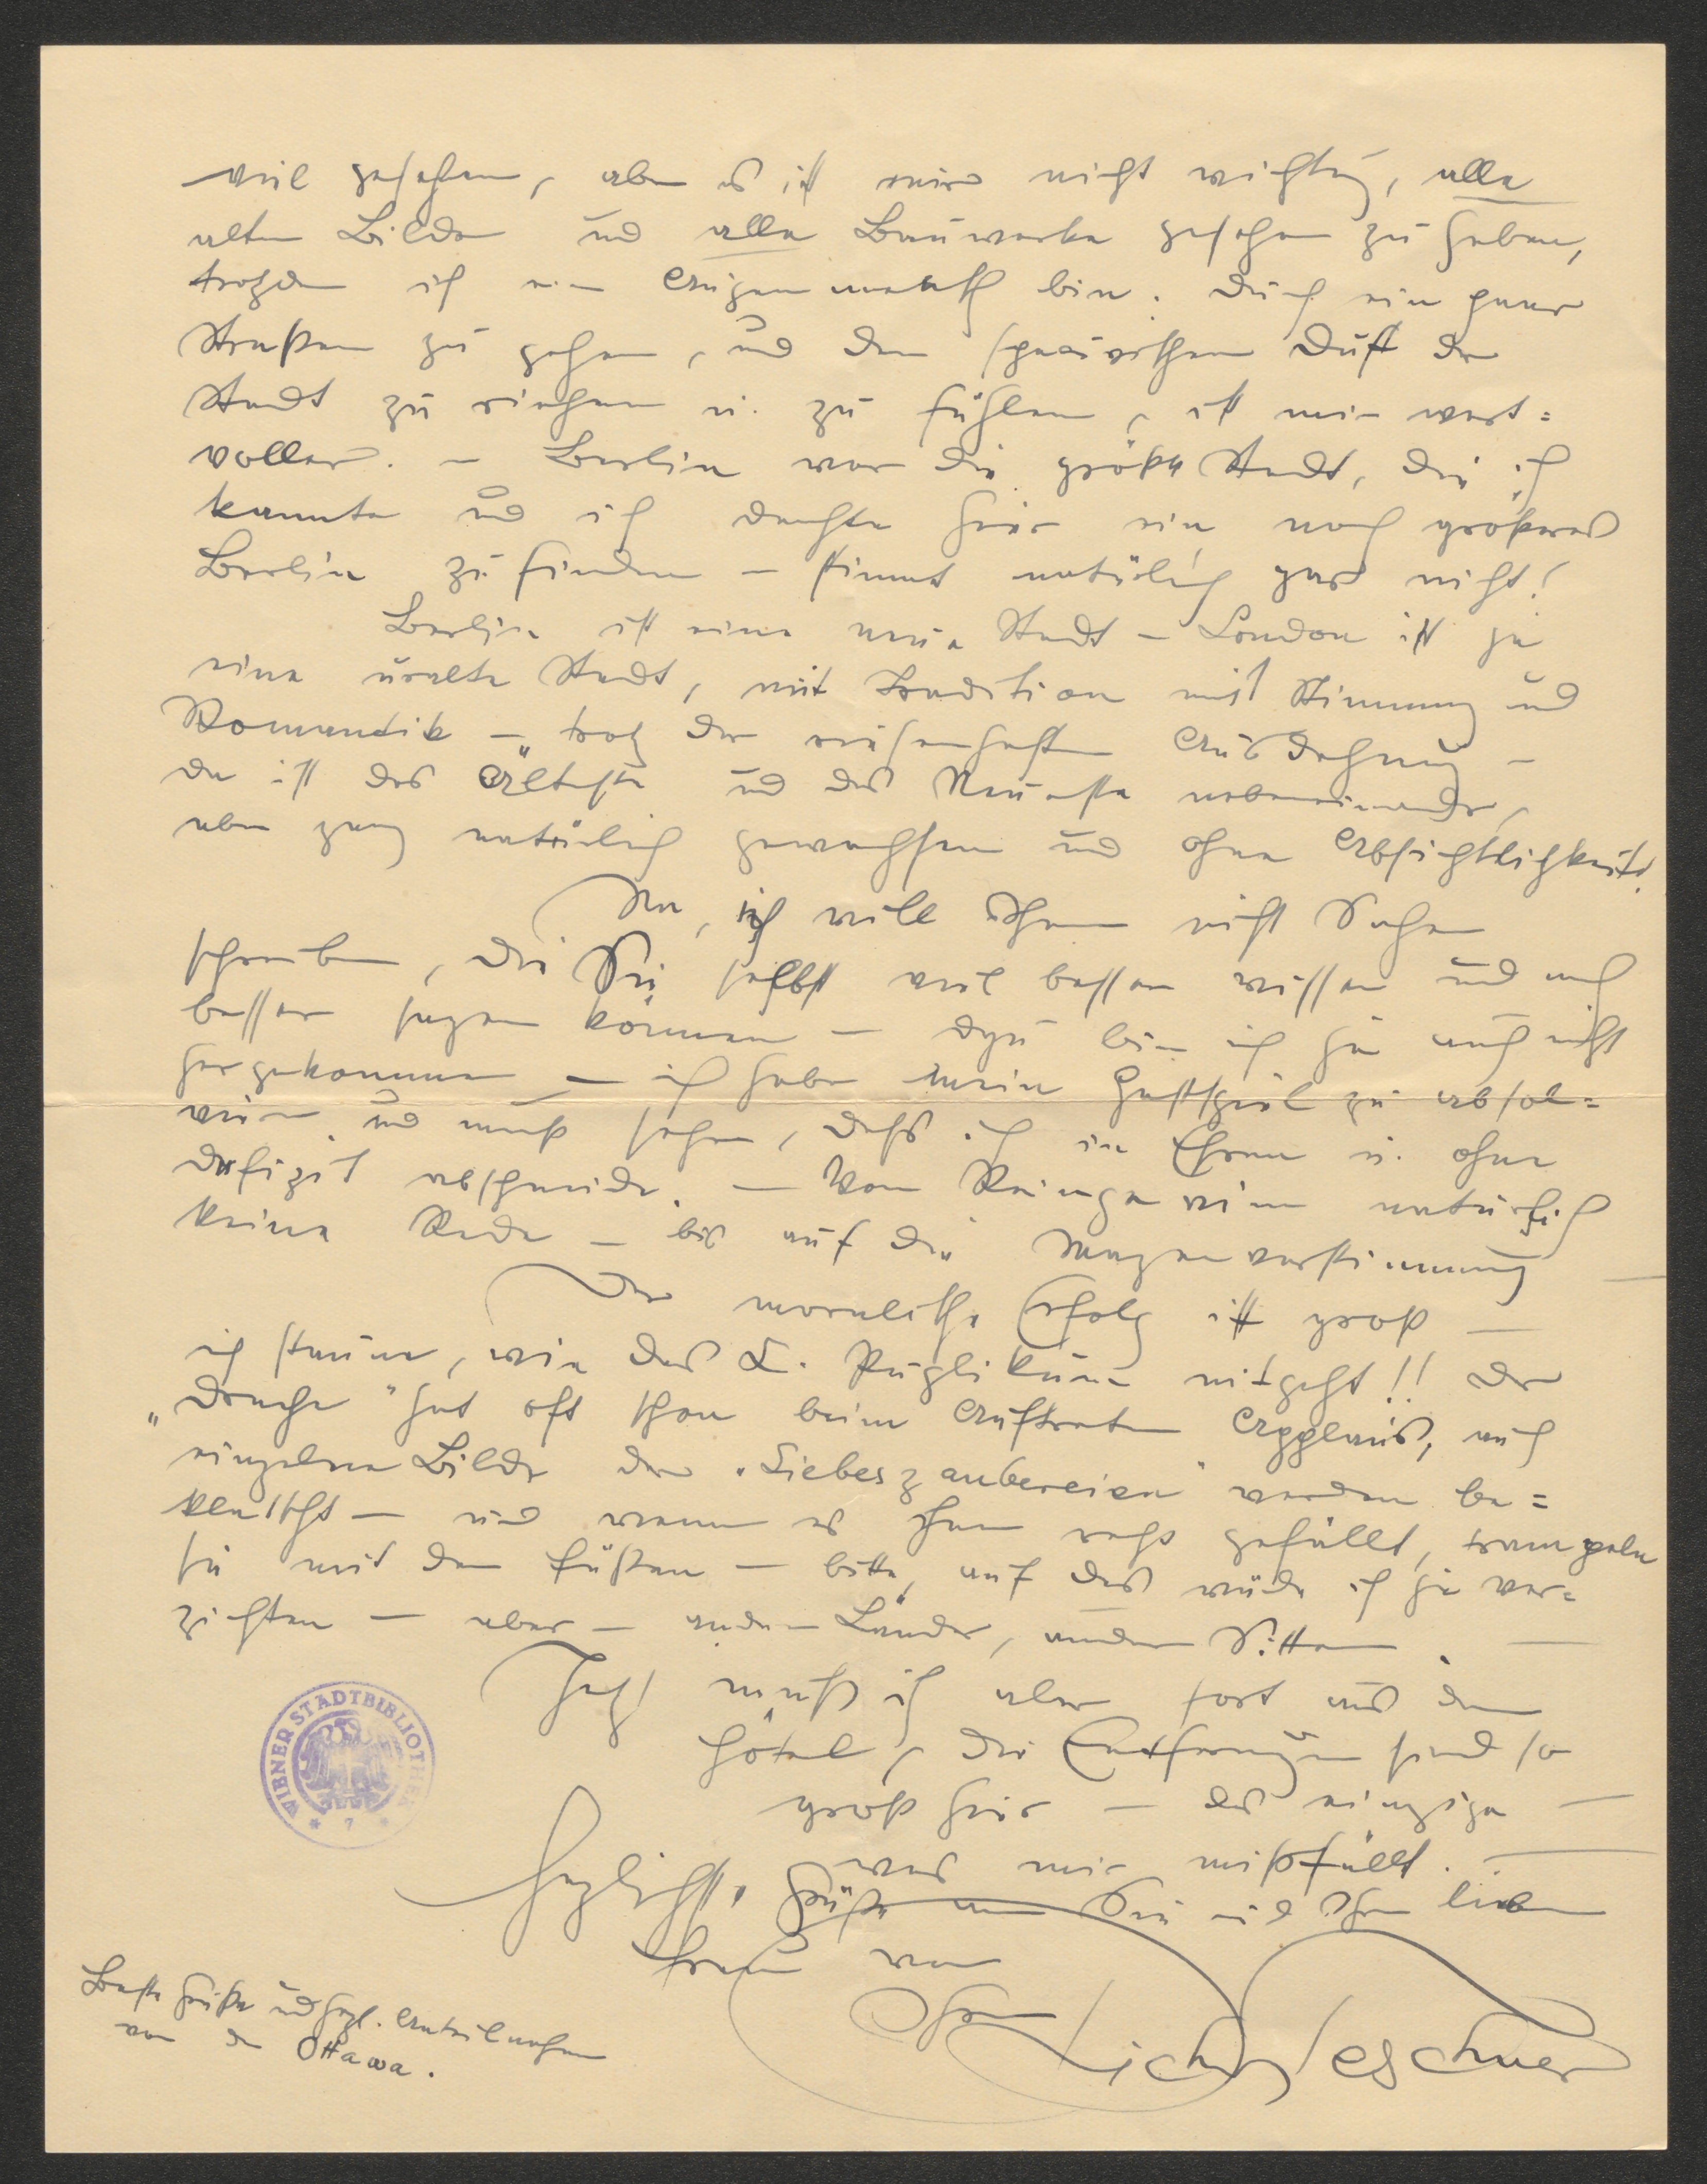 viel gesehen, aber es ist mir nicht wichtig, alle
alten Bilder und alle Bauwerke gesehen zu haben,
trotzdem ich ein Augenmensch bin. Durch ein paar
Straßen zu gehen, und den spezivischen Duft der
Stadt zu riechen u. zu fühlen, ist mir wert=
voller. – Berlin war die größte Stadt, die ich
kannte und ich dachte hier ein noch größeres
Berlin zu finden – stimmt natürlich gar nicht!
Berlin ist eine neue Stadt – London ist ja
eine uralte Stadt, mit Tradition mit Stimmung und
Romantik – trotz der riesenhaften Ausdehnung –
da ist das Älteste und das Neueste nebeneinander,
aber ganz natürlich gewachsen und ohne Absichtlichkeit.
Na, ich will Ihnen nicht Sachen
schreiben, die Sie selbst viel besser wissen und auch
besser sagen können – dazu bin ich ja auch nicht
hergekommen – ich habe mein Gastspiel zu absol=
vieren und muß sehen, daß ich in Ehren u. ohne
Defizit abschneide. – Von Reingewinn natürlich
keine Rede – bis auf die Magenverstimmung
Der moralische Erfolg ist groß –
ich staune, wie das L. Puplikum mitgeht!! Der
„Drache" hat oft schon beim Auftreten Applaus, auch
einzelne Bilder der „Liebeszaubereien" werden be=
klatscht – und wenn es ihnen recht gefällt, trampeln
sie mit den Füßen – bitte, auf das würde ich ja ver=
zichten – aber – andere Länder, andere Sitten. –
Jetzt muß ich aber fort aus dem
Hôtel, die Entfernungen sind so
groß hier – das einzige –
was mir mißfällt. –
Herzlichste Grüße an Sie und Ihre liebe
Frau von
Ihrem
Rich Teschner
Beste Grüße und herzl. Anteilnahme
von der Ottawa.
WIENER STADTBIBLIOTHEK
* 7 *